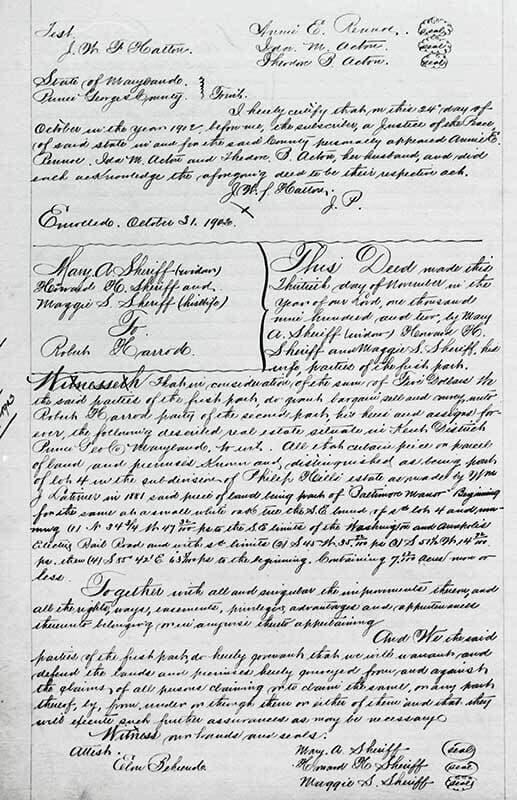 Test
J. W. F. Hatton
Annie E. Pumoe (seal)
Ida M. Acton (seal)
Theodore P. Acton (seal)
State of Maryland
Prince George's County } To wit
I hereby certify that on this 24th day of
October in the year 1902, before me, the subscriber, a Justice of the Peace,
of said state in and for the said County personally appeared Annie E.
Ida M. Acton and Theodore P. Acton, her husband, and did
each acknowledge the aforegoing deed to be their respective act.
J. W. F. Hatton
J. P.
Enrolled October 31. 1902.
Mary A Sheriff (widow)
Howard H. Sheriff and
Maggie S. Sheriff (his wife)
To
Robert Harrod.
This Deed made this
Thirtieth day of November in the
Year of our Lord, one thousand
nine hundred and two, by Mary
A. Sheriff (widow) Howard H.
Sheriff and Maggie S. Sheriff, his
wife, parties of the first part.
Witnesseth That in consideration of the sum of Five Dollars We
the said parties of the first part, do grant bargain sell and convey, unto
Robert Harrod party of the second part, his heirs and assigns for-
ever, the following described real estate situate in Kent District
Prince Geo Co Maryland to wit. All that certain piece or parcel
of land and premises known and distinguished as being part
of lot 4 in the subdivision of Philip Hills estate as made by Wm
J Latimer in 1881 said piece of land being part of Baltimore Manor. Beginning
for the same at a small white oak tree the S.E. bound of sd lot 4 and run-
ning (1) N 34 1/4 W. 47 ps to the S.E. limits of the Washington and Annapolis
Electric Rail Road and with sd limits (2) S 45 W. 35 ps (3) S 51 1/2 W. 14
ps. then (4) S 55 E 63 ps to the beginning. Containing 7 acres more or
less.
Together with all and singular the improvements thereon, and
all the rights, ways, easements, privileges, advantages and appurtenances
thereunto belonging or in anywise thereto appertaining
And We the said
parties of the first part, do hereby covenant that we will warrant and
defend the lands and premises hereby conveyed from and against
the claims of all persons claiming or to claim the same, or any part
thereof, by, from, under or through them or either of them and that they
will execute such further assurances as may be necessary
Witness our hands and seals.
Attest.
Mary. A. Sheriff (seal)
Howard H Sheriff (seal)
Maggie S. Sheriff (seal)